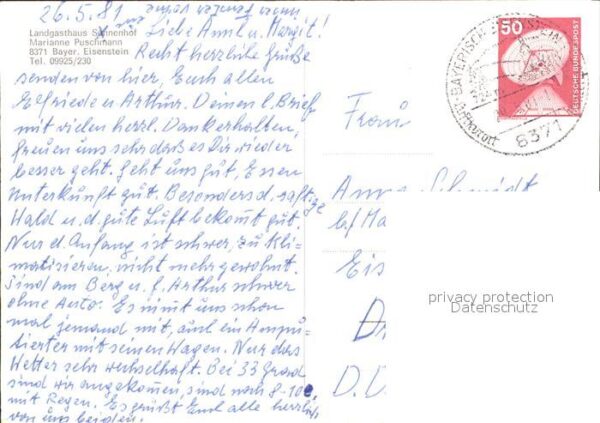 26.5.81
Liebe Annl u. Margit!
Landgasthaus Sonnenhof
Marianne Puschmann
8371 Bayer. Eisenstein
Tel. 09925/230
Recht herzliche Grüße
senden von hier, Euch allen
Elfriede u. Arthur. Deinen l. Brief
mit vielen herzl. Dank erhalten,
freuen uns sehr daß es Dir wieder
besser geht. Geht uns gut, Essen
Unterkunft gut. Besonders d. saftige
Wald u. d. gute Luft bekomt gut.
Nur d. Anfang ist schwer, zu kli-
matisieren, nicht mehr gewohnt.
Sind am Berg u. f. Arthur schwer
ohne Auto. Es nimt uns schon
mal jemand mit, auch ein Ampu-
tierter mit seinen Wagen. Nur das
Wetter sehr wechselhaft. Bei 33 Grad
sind wir angekomen, sind noch 8-10
mit Regen. Es grüßt Euch alle herzlich
von uns beiden.
Frau
Anna Schmidt
b/ Ma
Eis
D.D
50
DEUTSCHE BUNDESPOST
BAYERISCH EISENSTEIN
Luftkurort
8371
privacy protection
Datenschutz